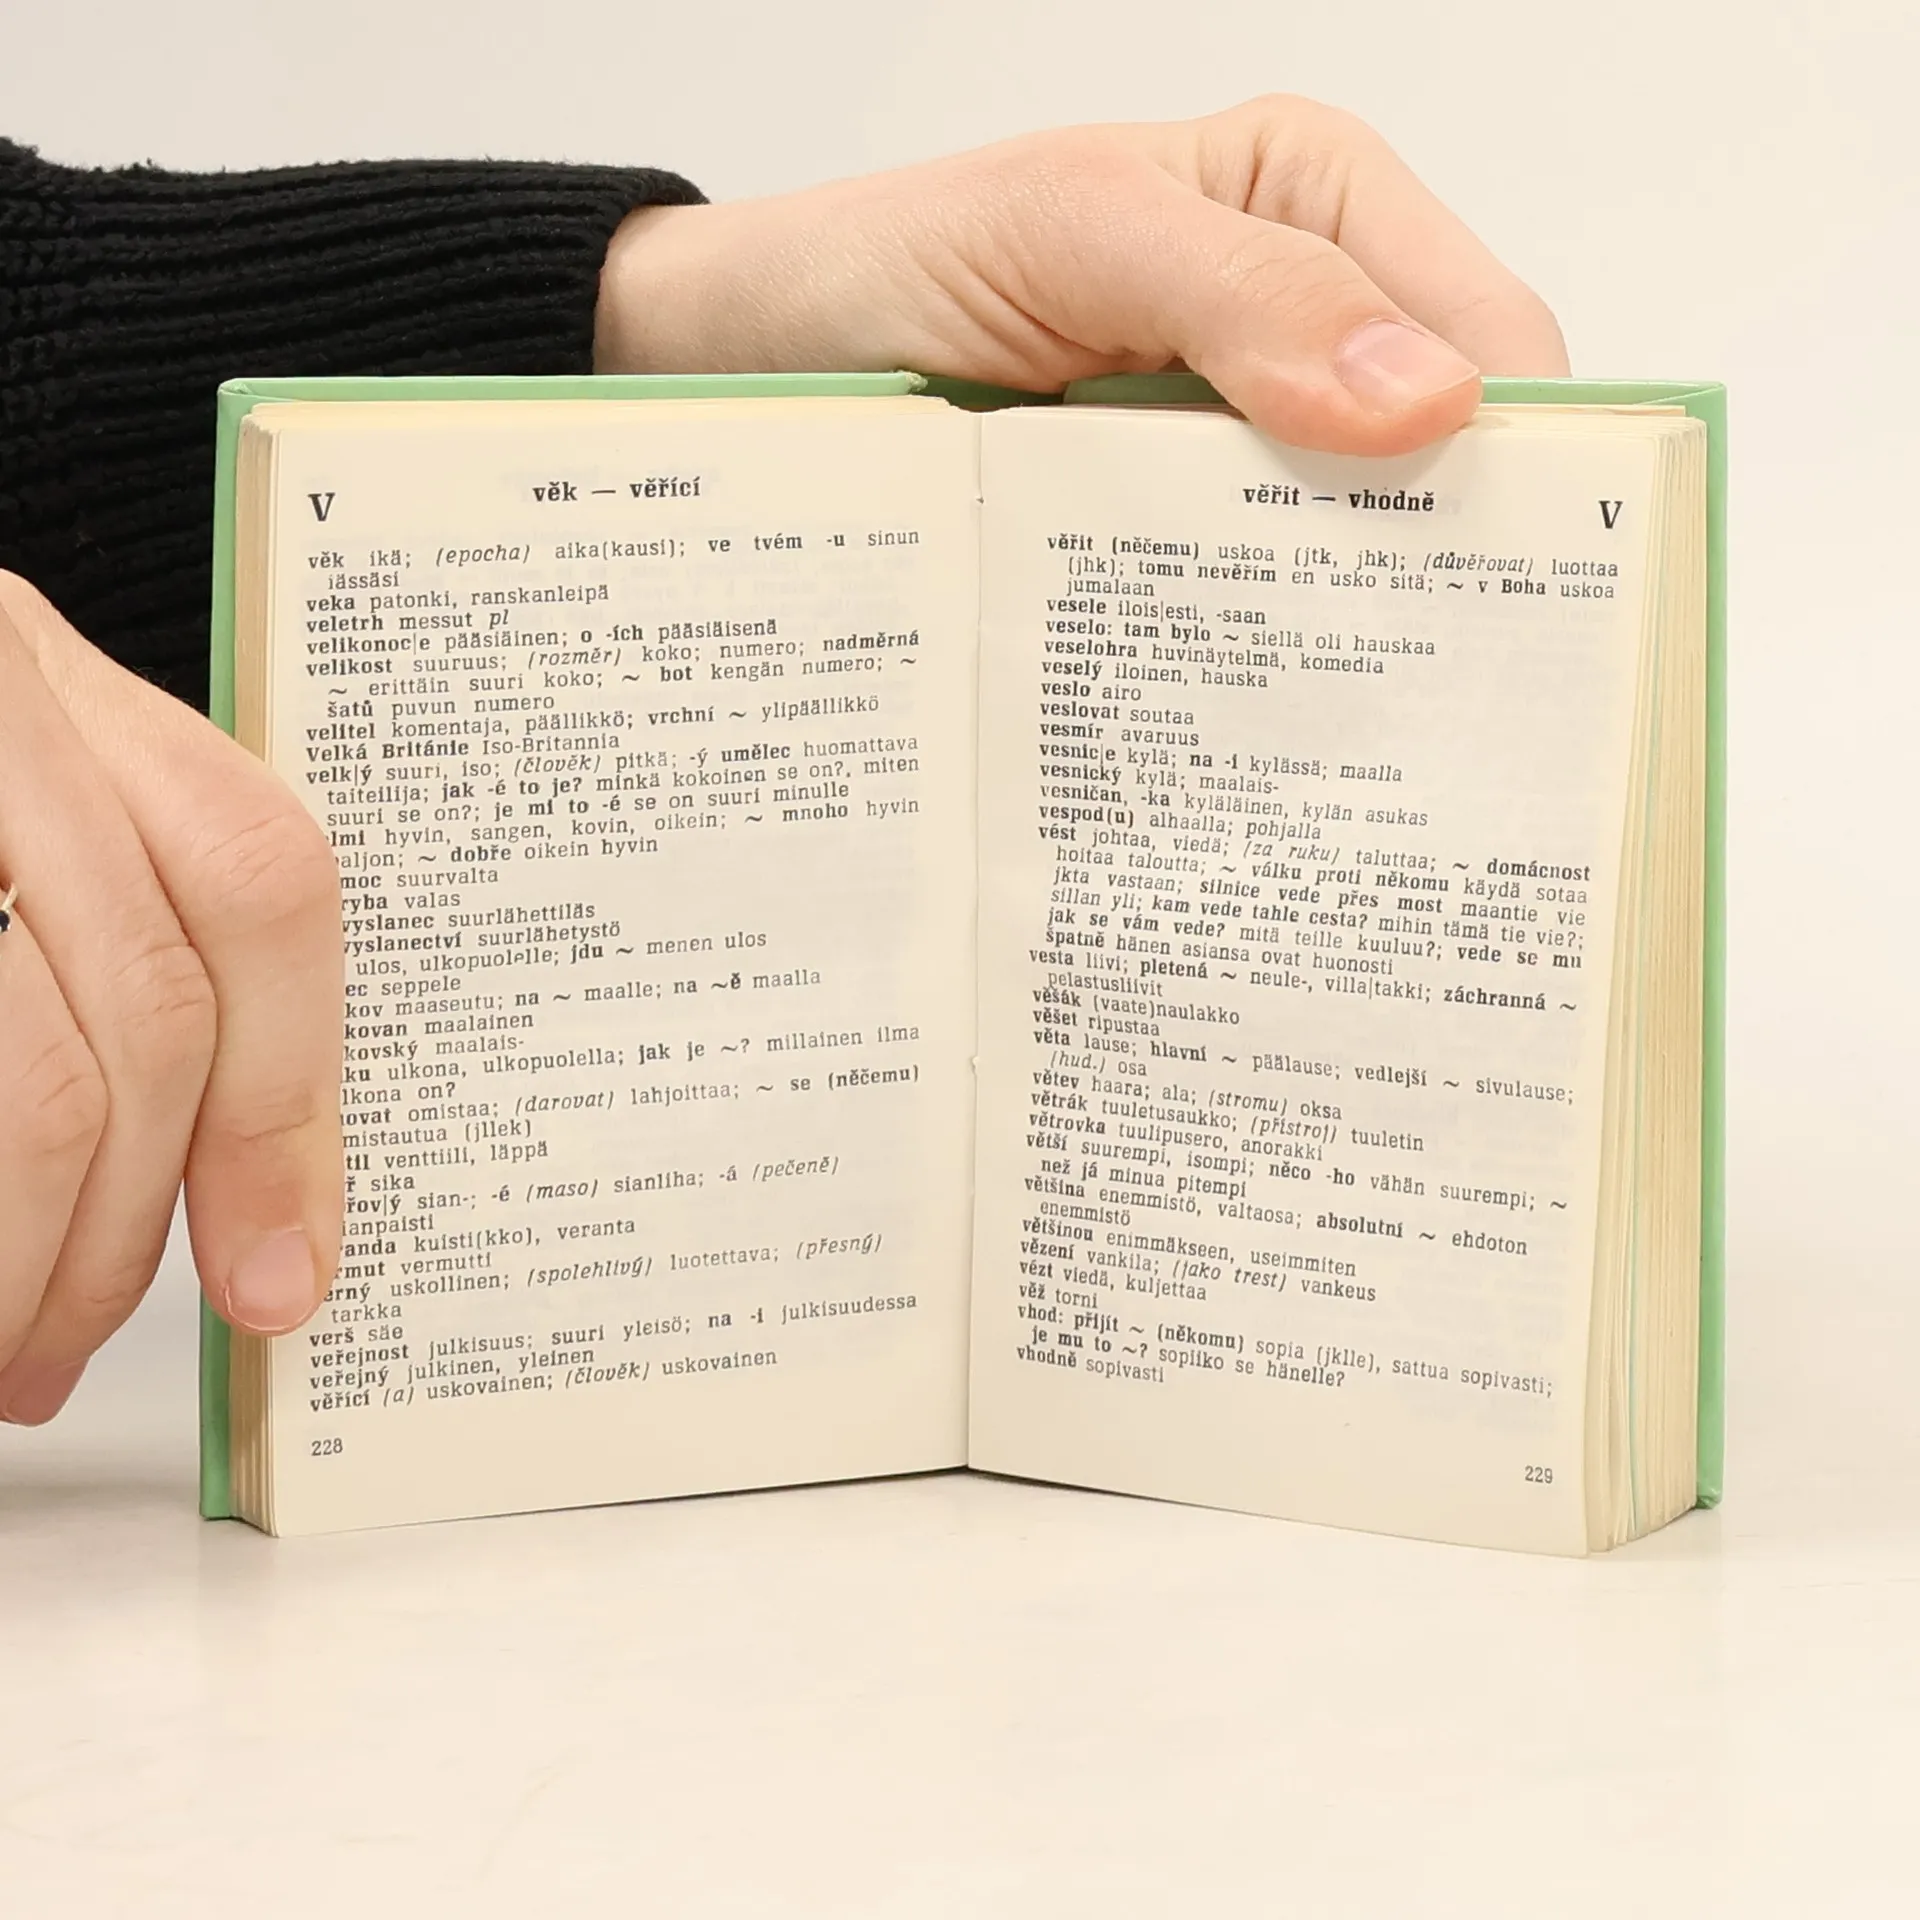 V
věk — věřící
věk ikä; (epocha) aika(kausi); ve tvém -u sinun
iässäsi
veka patonki, ranskanleipä
veletrh messut pl
velikonoc|e pääsiäinen; o -ích pääsiäisenä
velikost suuruus; (rozměr) koko; numero; nadměrná
~ erittäin suuri koko; ~ bot kengän numero; ~
šatů puvun numero
velitel komentaja, päällikkö; vrchní ~ ylipäällikkö
Velká Británie Iso-Britannia
velk|ý suuri, iso; (člověk) pitkä; -ý umělec huomattava
taiteilija; jak -é to je? minkä kokoinen se on?, miten
suuri se on?; je mi to -é se on suuri minulle
lmi hyvin, sangen, kovin, oikein; ~ mnoho hyvin
aljon; ~ dobře oikein hyvin
moc suurvalta
ryba valas
vyslanec suurlähettiläs
vyslanectví suurlähetystö
ulos, ulkopuolelle; jdu ~ menen ulos
ec seppele
kov maaseutu; na ~ maalle; na ~ě maalla
kovan maalainen
kovský maalais-
ku ulkona, ulkopuolella; jak je ~? millainen ilma
lkona on?
ovat omistaa; (darovat) lahjoittaa; ~ se (něčemu)
mistautua (jllek)
til venttiili, läppä
ř sika
řov|ý sian-; -é (maso) sianliha; -á (pečeně)
ianpaisti
anda kuisti(kko), veranta
rmut vermutti
erný uskollinen; (spolehlivý) luotettava; (přesný)
tarkka
verš säe
veřejnost julkisuus; suuri yleisö; na -i julkisuudessa
veřejný julkinen, yleinen
věřící (a) uskovainen; (člověk) uskovainen
228
věřit — vhodně
V
věřit (něčemu) uskoa (jtk, jhk); (důvěřovat) luottaa
(jhk); tomu nevěřím en usko sitä; ~ v Boha uskoa
jumalaan
vesele ilois|esti, -saan
veselo: tam bylo ~ siellä oli hauskaa
veselohra huvinäytelmä, komedia
veselý iloinen, hauska
veslo airo
veslovat soutaa
vesmír avaruus
vesnic|e kylä; na -i kylässä; maalla
vesnický kylä; maalais-
vesničan, -ka kyläläinen, kylän asukas
vespod(u) alhaalla; pohjalla
vést johtaa, viedä; (za ruku) taluttaa; ~ domácnost
hoitaa taloutta; ~ válku proti někomu käydä sotaa
jkta vastaan; silnice vede přes most maantie vie
sillan yli; kam vede tahle cesta? mihin tämä tie vie?;
jak se vám vede? mitä teille kuuluu?; vede se mu
špatně hänen asiansa ovat huonosti
vesta liivi; pletená ~ neule-, villa|takki; záchranná ~
pelastusliivit
věšák (vaate)naulakko
věšet ripustaa
věta lause; hlavní ~ päälause; vedlejší ~ sivulause;
(hud.) osa
větev haara; ala; (stromu) oksa
větrák tuuletusaukko; (přístroj) tuuletin
větrovka tuulipusero, anorakki
větší suurempi, isompi; něco -ho vähän suurempi; ~
než já minua pitempi
většina enemmistö, valtaosa; absolutní ~ ehdoton
enemmistö
většinou enimmäkseen, useimmiten
vězení vankila; (jako trest) vankeus
vézt viedä, kuljettaa
věž torni
vhod: přijít ~ (někomu) sopia (jklle), sattua sopivasti;
je mu to ~? sopiiko se hänelle?
vhodně sopivasti
229